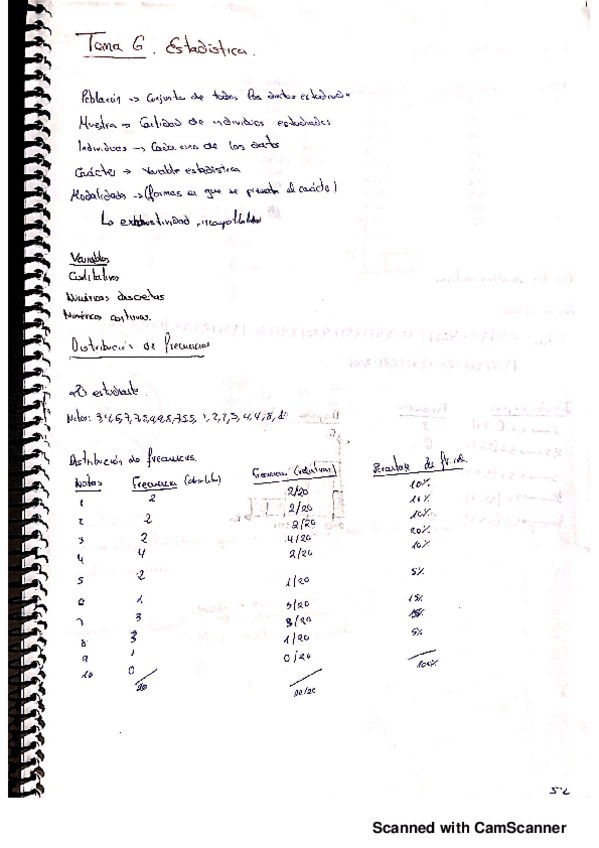 Tema 6. Estadística.
Población -> Conjunto de todos los datos
Muestra -> Cantidad de individuos estudiados
Individuos -> Cada uno de los datos
Carácter -> Variable estadística
Modalidades -> (formas en que se presenta el carácter)
Variables
Cualitativas
Numéricas discretas
Numéricas continuas.
Distribución de frecuencias
estudiante
Notas:
Distribución de frecuencias.
Notas Frecuencia (absoluta) Frecuencia (relativa) de
1 2 2/20 10%
2 2 2/20 10%
3 2 2/20 10%
4 4 4/20 20%
5 2 2/20 10%
6 1 1/20 5%
7 3 3/20 15%
8 3 3/20 15%
9 1 1/20 5%
10 0 0/20
20 20/20 100%
Scanned with CamScanner